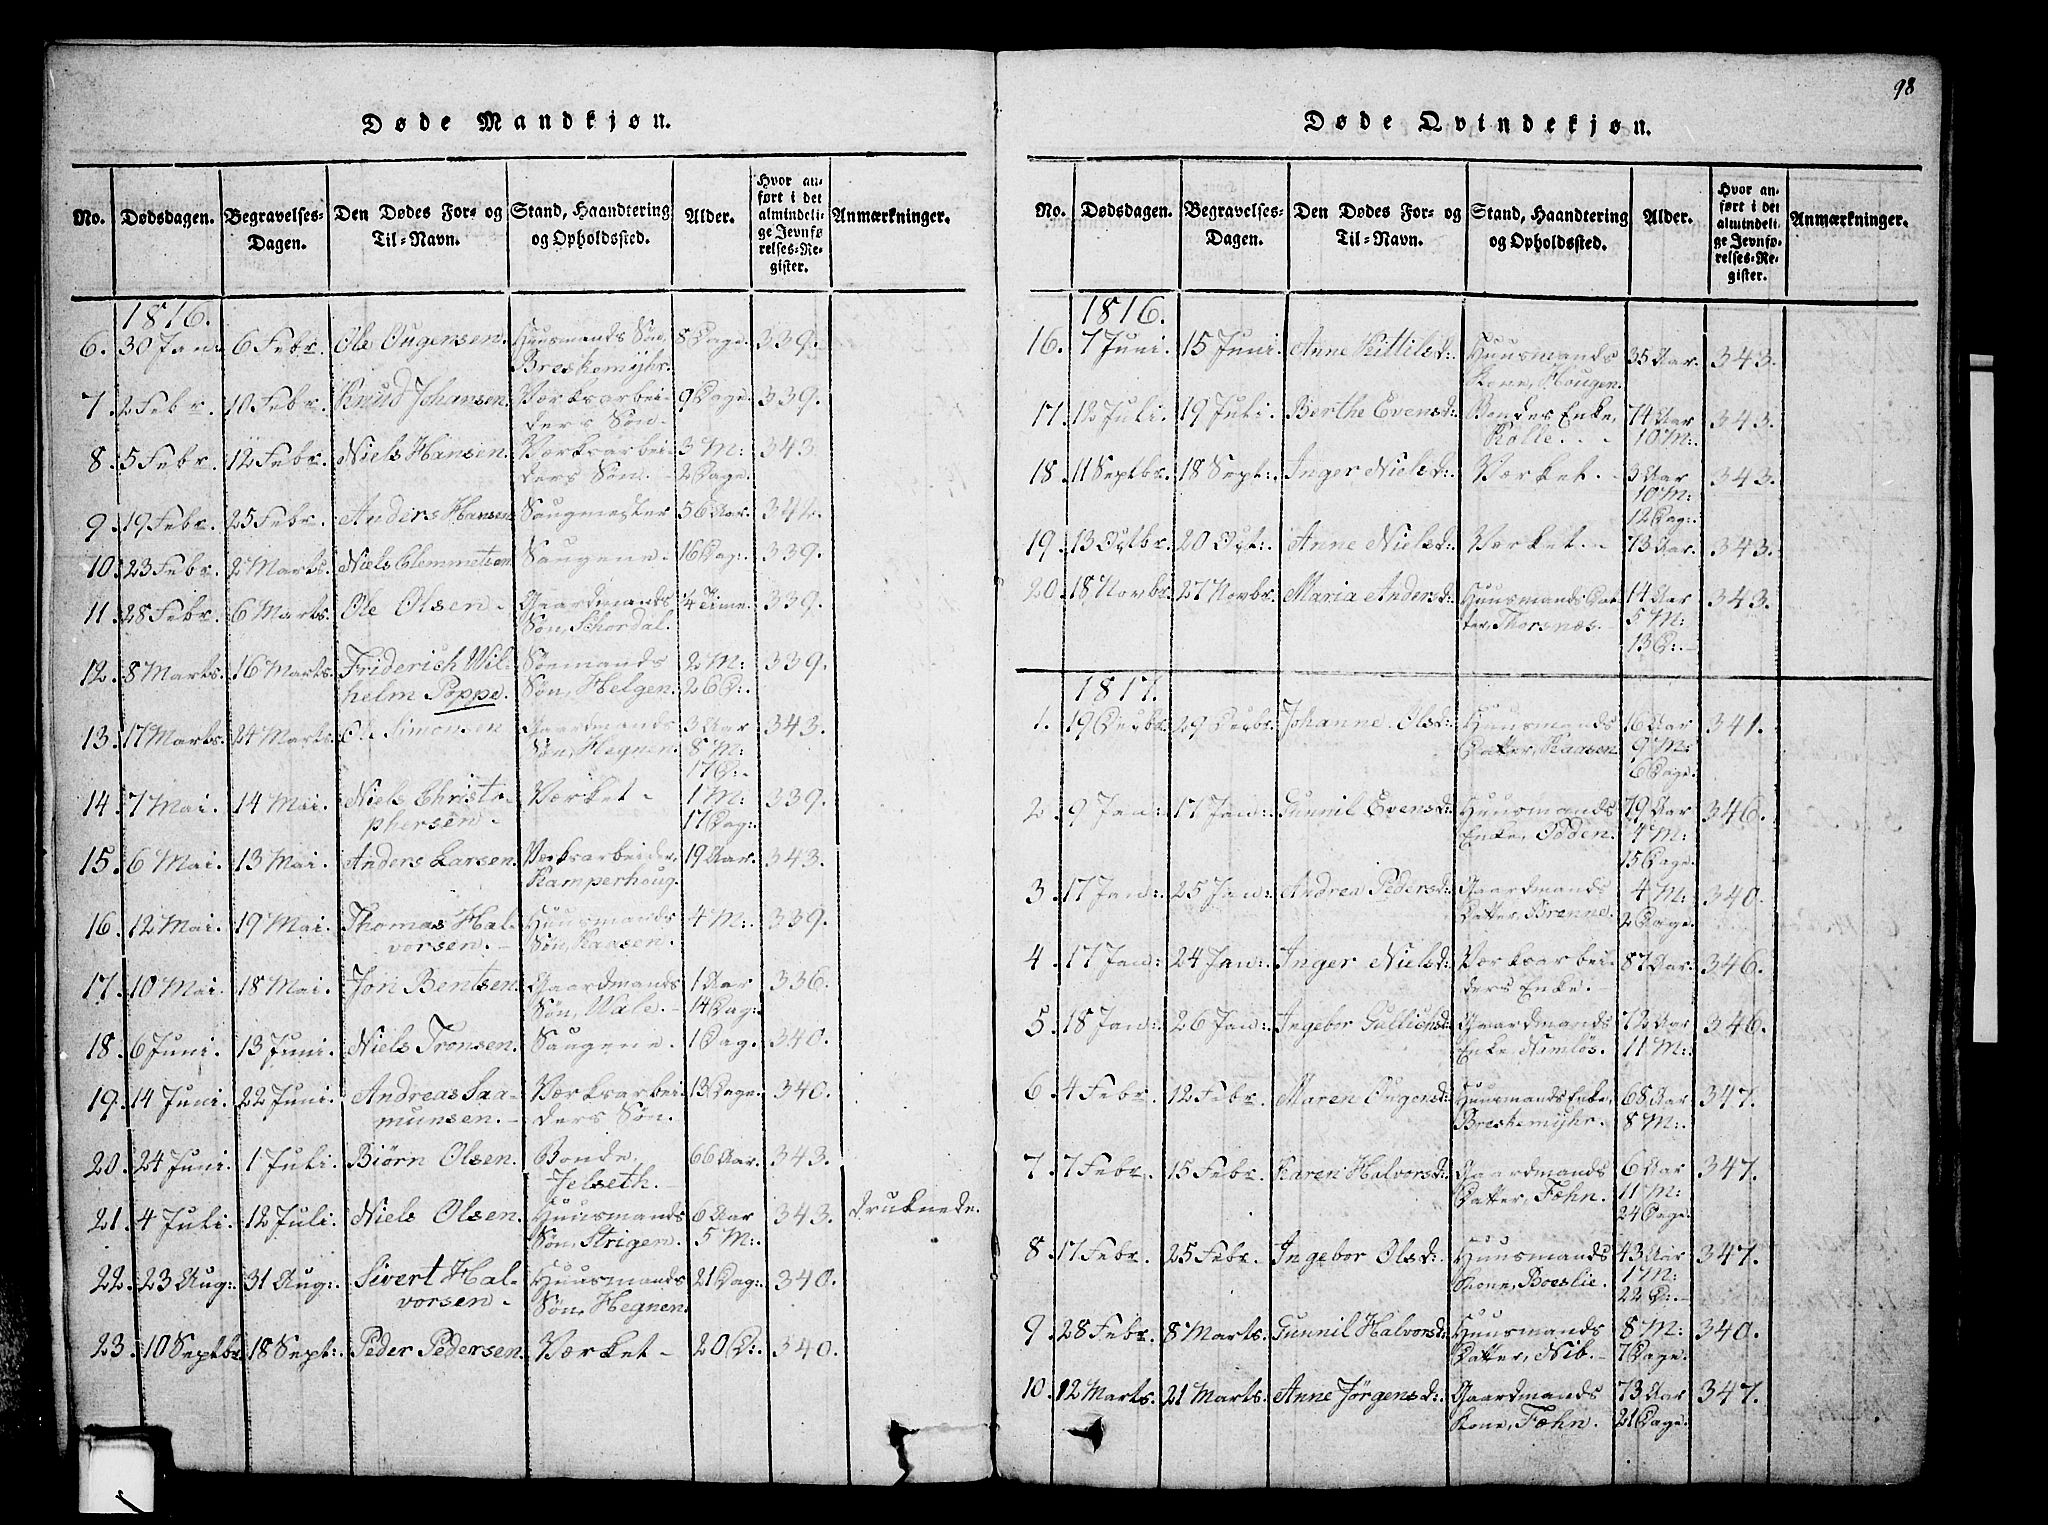 98
Døde Mandkjøn.
No. Dødsdagen. Begravelses-Dagen. Den Dødes For- og Til-Navn. Stand, Haandtering og Opholdssted. Alder. Hvor anført i det almindelige Jevnførelses-Register. Anmærkninger.
1816.
6. 30 Jan: 6 Febr. Ole Ougensen. Huusmands Søn, 8 Dage. 339.
Breskemyhr.
7. 2 Febr. 10 Febr. Knud Johansen. Værksarbei- 9 Dage. 339.
ders Søn.
8. 5 Febr. 12 Febr. Niels Hansen. Værksarbei- 3 M: 343.
ders Søn. 2 Dage.
9. 19 Febr. 25 Febr. Anders Hansen Saugmester 56 Aar. 344.
10. 23 Febr. 2 Marts. Niels Clemmetsen Saugene. 16 Dag: 339.
11. 28 Febr. 6 Marts. Ole Olsen. Gaardmands 1/4 Time. 339.
Søn, Schordal.
12. 8 Marts. 16 Marts. Friderich Wil- Søemands 2 M: 339.
helm Poppe. Søn, Helgen. 26 D:
13. 17 Marts. 24 Marts. Ole Simonsen Gaardmands 3 Aar 343.
Søn, Hegnen. 8 M:
17 D:
14. 7 Mai. 14 Mai. Niels Christo- Værket - 1 M: 339.
phersen. 17 Dag:
15. 6 Mai. 13 Mai. Anders Larsen. Værksarbeider, 19 Aar. 343.
Kamperhoug.
16. 12 Mai. 19 Mai. Thomas Hal- Huusmands 4 M: 339.
vorsen. Søn, Kaasen.
17. 10 Mai. 18 Mai. Jon Bentsen. Gaardmands 1 Aar 336.
Søn, Wale. 14 Dag:
18. 6 Juni. 13 Juni. Niels Tronsen. Saugene. 1 Dag. 340.
19. 14 Juni. 22 Juni. Andreas Saa- Værksarbei- 13 Dage. 340.
munsen. ders Søn.
20. 24 Juni. 1 Juli. Biørn Olsen. Bonde, 66 Aar. 343.
Jelseth.
21. 4 Juli. 12 Juli. Niels Olsen. Huusmands 6 Aar 343. druknede.
Søn, Strigen. 5 M:
22. 23 Aug: 31 Aug: Sivert Hal- Huusmands 21 Dag: 340.
vorsen - Søn, Hegnen.
23. 10 Septbr. 18 Sept: Peder Pedersen. Værket - 20 D: 340.
Døde Qvindekjøn.
No. Dødsdagen. Begravelses-Dagen. Den Dødes For- og Til-Navn. Stand, Haandtering og Opholdssted. Alder. Hvor anført i det almindelige Jevnførelses-Register. Anmærkninger.
1816.
16. 7 Juni. 15 Juni. Anne Kittilsd: Huusmands 35 Aar. 343.
Kone, Hougen.
17. 12 Juli. 19 Juli. Berthe Evensd: Bondes Enke, 74 Aar 343.
Rølle. 10 M:
18. 11 Septbr. 18 Sept: Inger Nielsd: Værket. 3 Aar 343.
10 M:
12 Dag:
19. 13 Octbr. 20 Oct: Anne Nielsd: Værket. 73 Aar. 343.
20. 18 Novbr. 27 Novbr. Maria Andersd: Huusmands Dat- 14 Aar 343.
ter, Thorsnæs. 5 M:
13 D:
1817.
1. 19 Decbr. 29 Decbr. Johanne Olsd: Huusmands 16 Aar 341.
Datter, Kaasen 9 M:
6 Dage.
2. 9 Jan: 17 Jan: Gunnil Evensd: Huusmands 79 Aar 346.
Enke, Doden. 4 M:
15 Dage.
3. 17 Jan: 25 Jan: Andrea Pedersd: Gaardmands 4 M: 340.
Datter, Brenne. 2 Dage.
4. 17 Jan: 24 Jan: Inger Nielsd: Værksarbei- 87 Aar. 346.
ders Enke.
5. 18 Jan: 26 Jan: Ingebor Gullichsd: Gaardmands 72 Aar 346.
Enke, Nimløs. 11 M:
6. 4 Febr. 12 Febr. Maren Ougensd: Huusmands Enke, 68 Aar 347.
Breskemyhr. 8 M:
7. 7 Febr. 15 Febr. Karen Halvorsd: Gaardmands 6 Aar 347.
Datter, Fæhn. 11 M:
24 Dage.
8. 17 Febr. 25 Febr. Ingebor Olsd: Huusmands 43 Aar 347.
Kone, Boeslie. 1 M:
22 D:
9. 28 Febr. 8 Marts. Gunnil Halvorsd: Huusmands 8 M: 340.
Datter, Nib. 7 Dage.
10. 12 Marts. 21 Marts. Anne Jörgensd: Gaardmands 73 Aar 347.
Kone, Fæhn. 21 Dage.